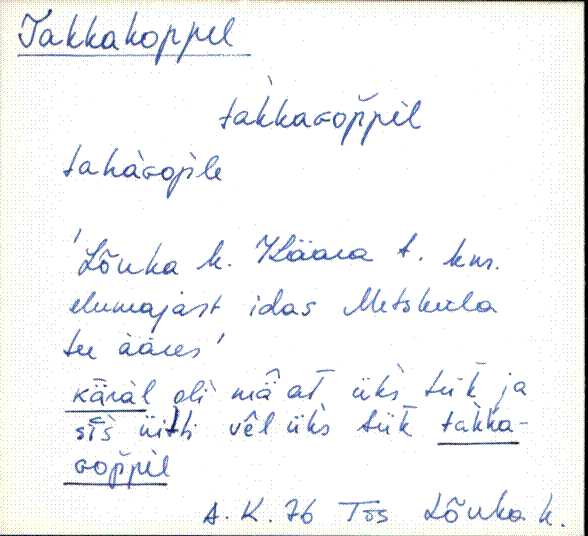 Takkakoppel
tàkkavop̆pil
tahàvojile
'Lõuka k. Käära t. kms.
elumajast idas Metsküla
tee ääres'
käràl oli mä̂ at̄ ük̀s tük̄ ja
sīs üìtti vêl ük̀s tük̄ tàkka-
vop̆pil
A. K. 76 Tõs Lõuka k.